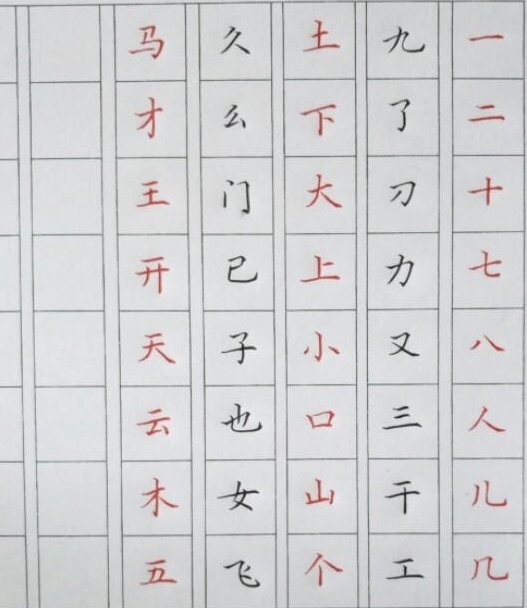 一二十七八人儿几
九了刀力又三干工
土下大上小口山个
久么门已子也女飞
马才王开天云木五